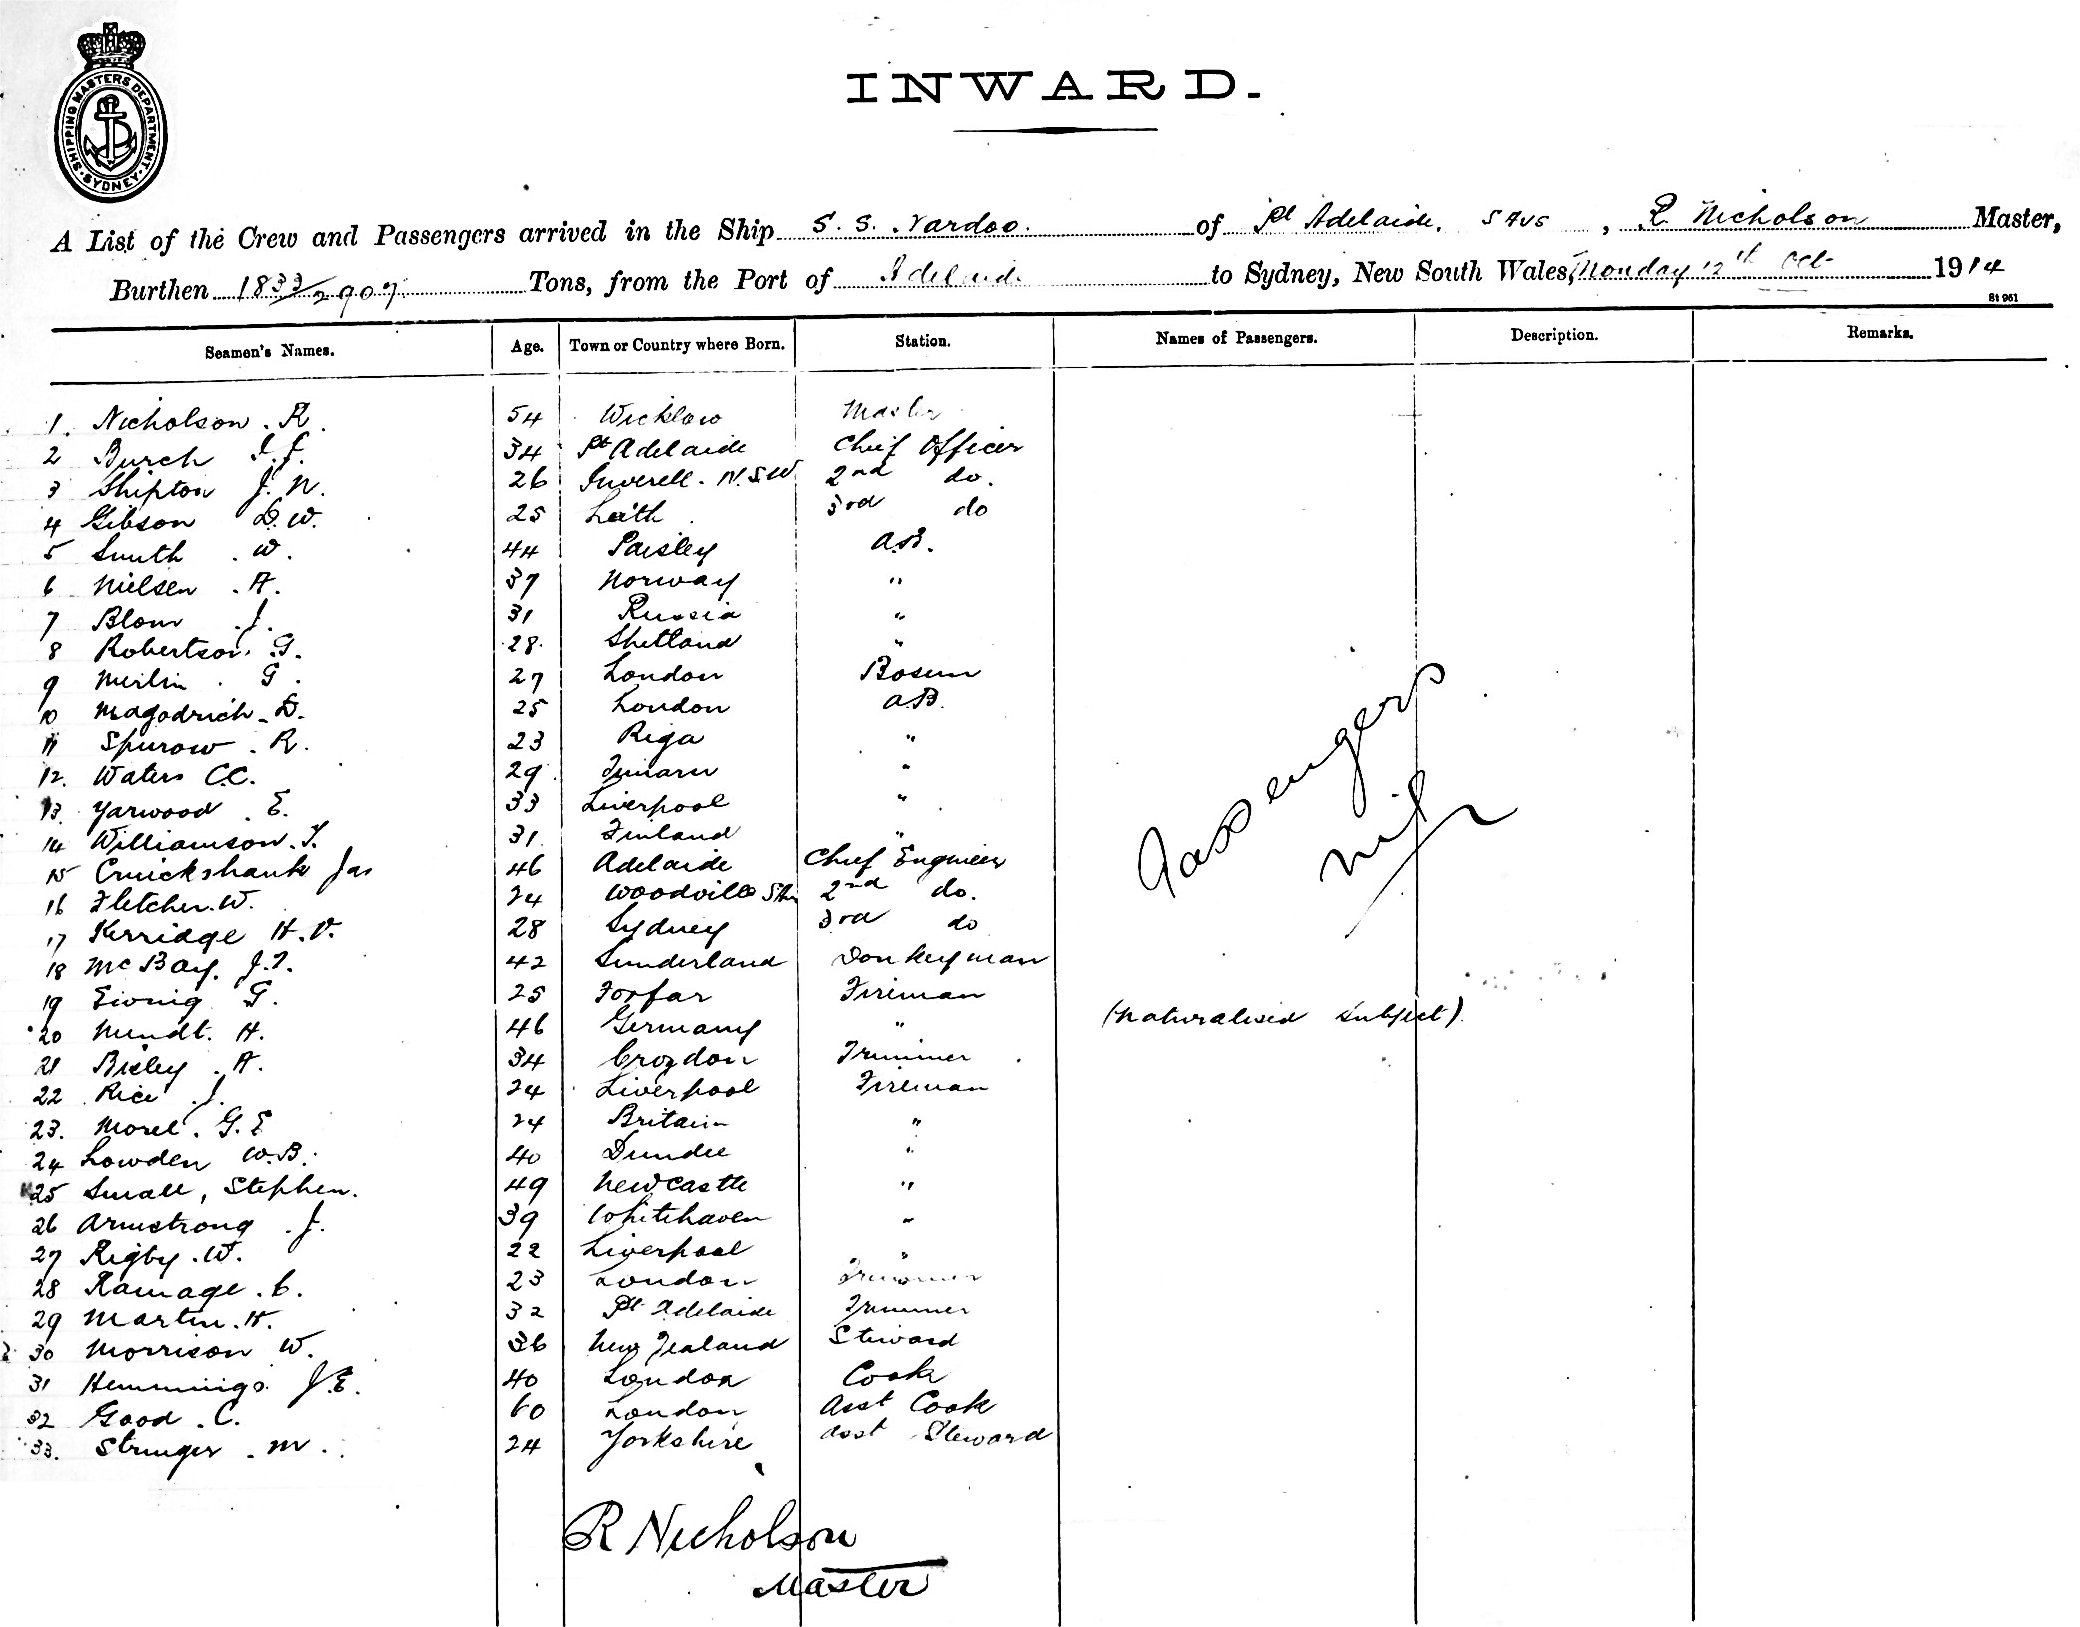 SHIPPING MASTERS DEPARTMENT. SYDNEY.
INWARD.
A List of the Crew and Passengers arrived in the Ship S. S. Yardoo. of Pt Adelaide, , R Nicholson Master,
Burthen 1833/2909 Tons, from the Port of Adelaide to Sydney, New South Wales, Monday 12th Oct 1914
81 961
Seamen's Names. Age. Town or Country where Born. Station. Names of Passengers. Description. Remarks.
1. Nicholson. R. 54 Wicklow Master
2 Burch 34 Pt Adelaide Chief Officer
3 Shipton J. N. 26 Inverell. N.S.W. 2nd do.
4 Gibson D. W. 25 Leith 3rd do
5 Smith . W. 44 Paisley A.B.
6 Nielsen . A. 37 Norway "
7 Blom . J. 31 Russia "
8 Robertson. G. 28. Shetland "
9 Merlin . G. 27 London Bosun
10 Magodrich. D. 25 London A.B.
11 Spurow . R. 23 Riga "
12. Waters C.C. 29 Timaru "
13. Yarwood . E. 33 Liverpool "
14 Williamson. 31. Finland "
15 Cruickshank Jas 46 Adelaide Chief Engineer
16 Fletcher. W. 24 Woodville 2nd do.
17 Kerridge H. V. 28 Sydney 3rd do
18 McBay. J. 42 Sunderland Donkeyman
19 Ewing G. 25 Forfar Fireman
20 Mundt. H. 46 Germany " (Naturalised Subject).
21 Bisley . A. 34 Croydon Trimmer
22 Rice . J. 24 Liverpool Fireman
23. Morel. G. E 24 Britain "
24 Lowden W. B. 40 Dundee "
25 Small, Stephen. 49 Newcastle "
26 Armstrong . J. 39 Whitehaven "
27 Rigby . W. 22 Liverpool "
28 Ramage . C. 23 London Trimmer
29 Martin. H. 32 Pt Adelaide Trimmer
30 Morrison W. 36 New Zealand Steward
31 Hemmings. J. E. 40 London Cook
32 Good . C. 60 London Asst Cook
33. Stringer . M. 24 Yorkshire Asst Steward
Passengers
nil
R Nicholson
Master